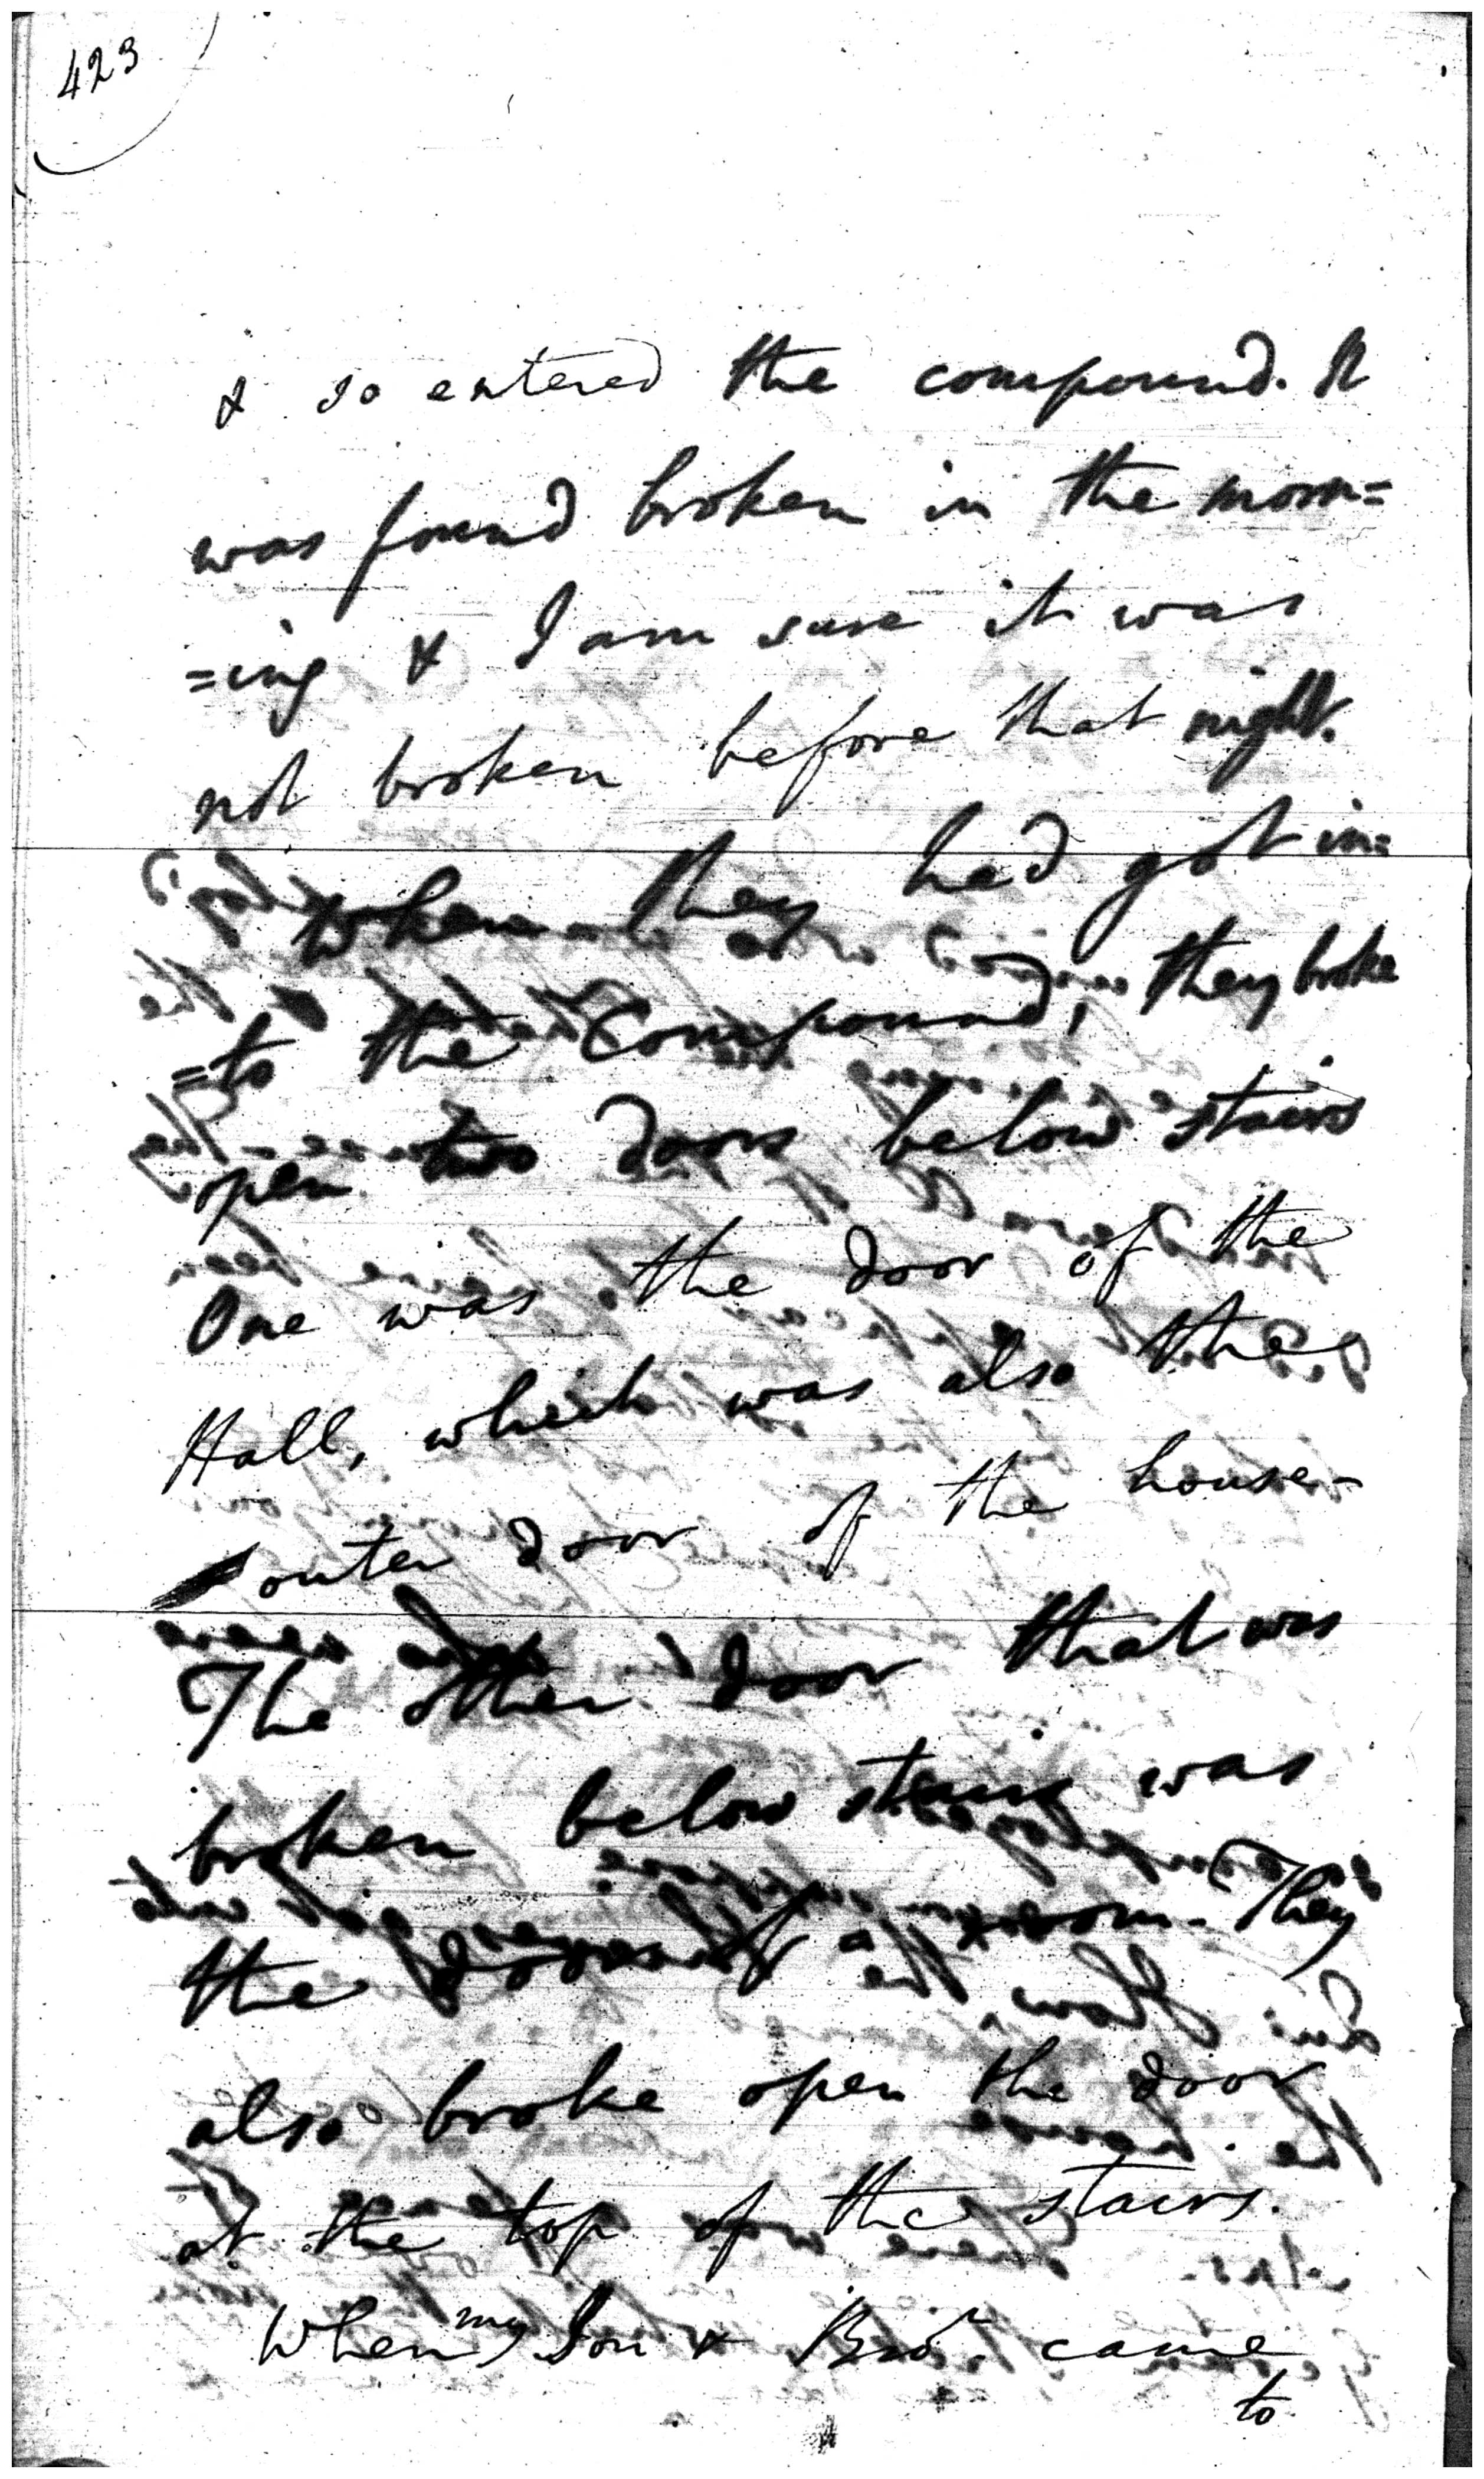 423
& so entered the compound. It
was found broken in the morn=
=ing & I am sure it was
not broken before that night.
When they had got in=
=to the Compound, they broke
open two doors below stairs
One was the door of the
Hall, which was also the
outer door of the house-
The other door that was
broken below stairs was
the door of a room. They
also broke open the door
at the top of the stairs.
When my Son & Bror. came
to